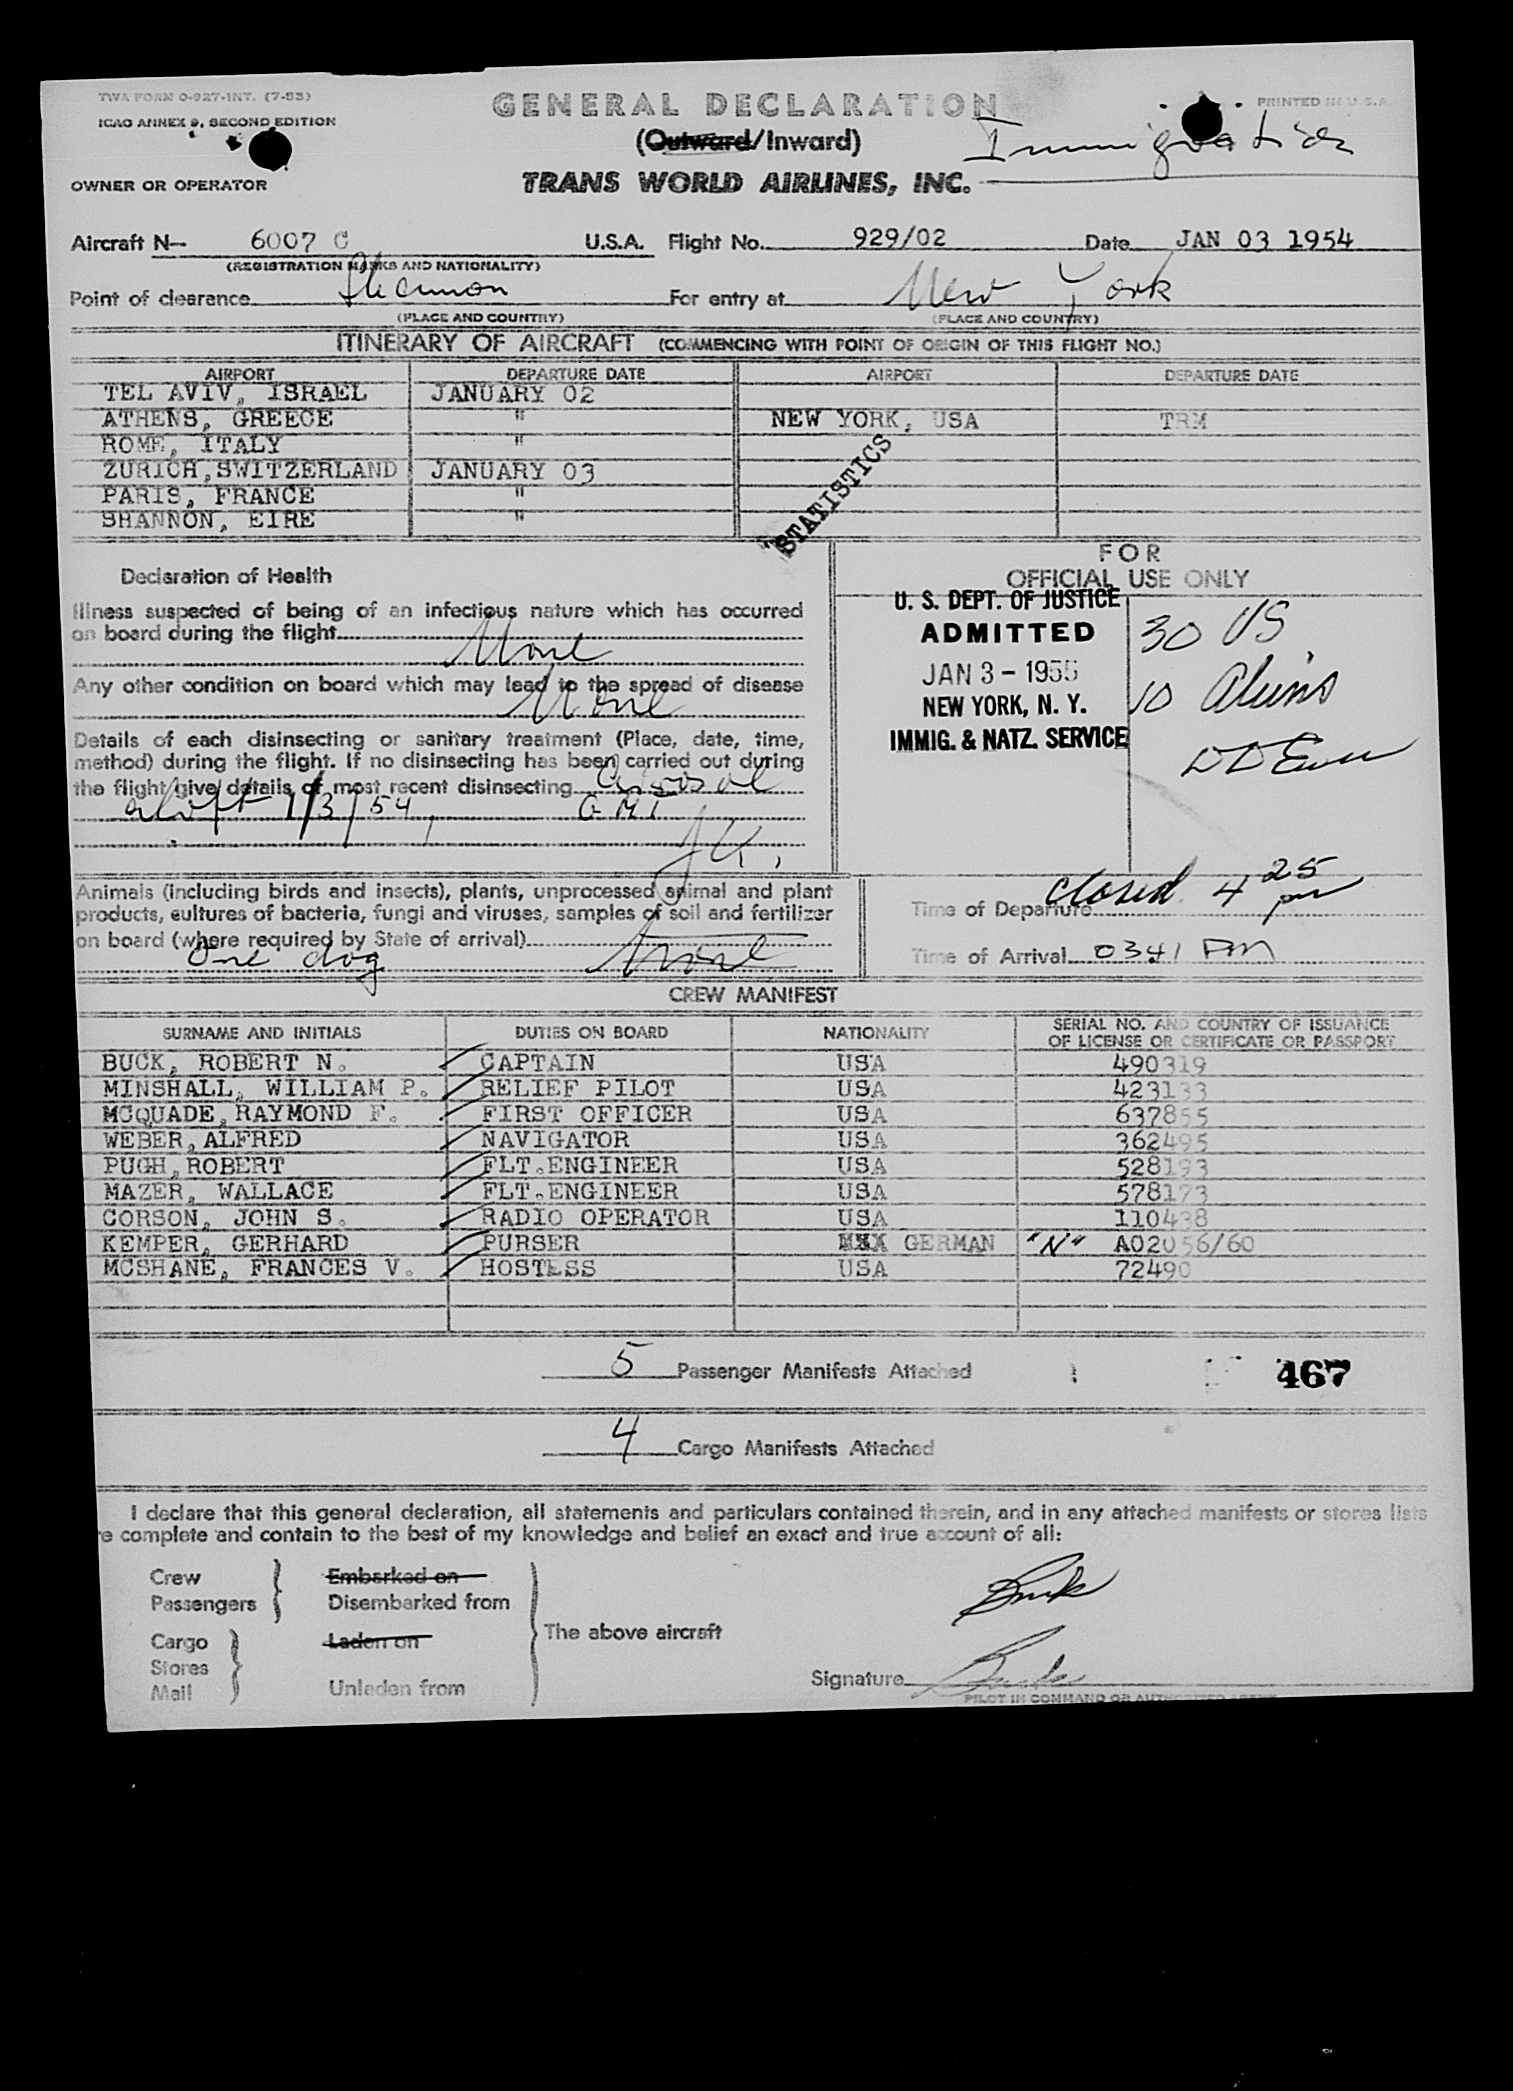 TWA FORM O-927-INT. (7-53)
ICAO ANNEX 9, SECOND EDITION
GENERAL DECLARATION
PRINTED IN U.S.A.
(Outward/Inward)
Immigration
OWNER OR OPERATOR
TRANS WORLD AIRLINES, INC.
Aircraft N- 6007 C U.S.A. Flight No. 929/02 Date JAN 03 1954
(REGISTRATION MARKS AND NATIONALITY)
Point of clearance Shannon For entry at New York
(PLACE AND COUNTRY) (PLACE AND COUNTRY)
ITINERARY OF AIRCRAFT (COMMENCING WITH POINT OF ORIGIN OF THIS FLIGHT NO.)
AIRPORT DEPARTURE DATE AIRPORT DEPARTURE DATE
TEL AVIV, ISRAEL JANUARY 02
ATHENS, GREECE " NEW YORK, USA TRM
ROME, ITALY "
ZURICH, SWITZERLAND JANUARY 03
PARIS, FRANCE "
SHANNON, EIRE "
STATISTICS
Declaration of Health
Illness suspected of being of an infectious nature which has occurred
on board during the flight
None
Any other condition on board which may lead to the spread of disease
None
Details of each disinsecting or sanitary treatment (Place, date, time,
method) during the flight. If no disinsecting has been carried out during
the flight give details of most recent disinsecting
aloft 1/3/54, GMT
J.K.
FOR
OFFICIAL USE ONLY
U. S. DEPT. OF JUSTICE
ADMITTED
JAN 3 - 1955
NEW YORK, N. Y.
IMMIG. & NATZ. SERVICE
30 US
10 Aliens
Animals (including birds and insects), plants, unprocessed animal and plant
products, cultures of bacteria, fungi and viruses, samples of soil and fertilizer
on board (where required by State of arrival)
One dog None
Time of Departure closed 4 25 pm
Time of Arrival 0341 PM
CREW MANIFEST
SURNAME AND INITIALS DUTIES ON BOARD NATIONALITY SERIAL NO. AND COUNTRY OF ISSUANCE
OF LICENSE OR CERTIFICATE OR PASSPORT
BUCK, ROBERT N. CAPTAIN USA 490319
MINSHALL, WILLIAM P. RELIEF PILOT USA 423133
MCQUADE, RAYMOND F. FIRST OFFICER USA 637855
WEBER, ALFRED NAVIGATOR USA 362495
PUGH, ROBERT FLT.ENGINEER USA 528193
MAZER, WALLACE FLT.ENGINEER USA 578173
CORSON, JOHN S. RADIO OPERATOR USA 110438
KEMPER, GERHARD PURSER GERMAN "N" A02056/60
MCSHANE, FRANCES V. HOSTESS USA 72490
5 Passenger Manifests Attached
467
4 Cargo Manifests Attached
I declare that this general declaration, all statements and particulars contained therein, and in any attached manifests or stores lists
e complete and contain to the best of my knowledge and belief an exact and true account of all:
Crew Embarked on
Passengers Disembarked from
The above aircraft
Cargo Laden on
Stores
Mail Unladen from
Buck
Signature Buck
PILOT IN COMMAND OR AUTHORIZED AGENT